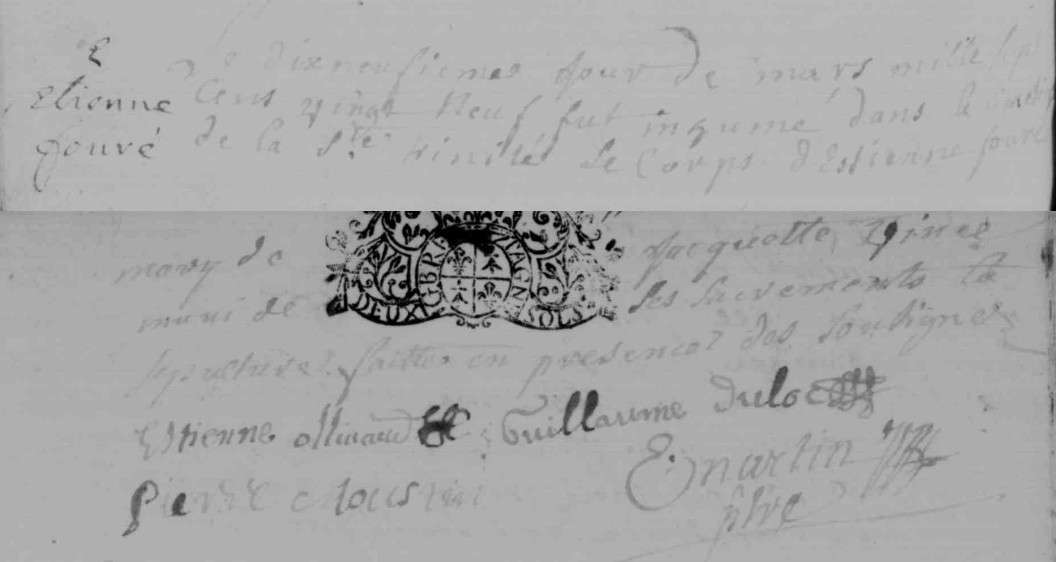 E
Etienne
Fouré
Le dixneufiemes Jour de mars mille sept
Cens vingt Neuf fut inhumé dans le
de la Ste trinité Le Corps d'Estienne fouré
mary de Jacquette
muni de ses sacrements la
sepulture faitte en presence des Soubsignes
Estienne Guillaume duloc
Pierre E. martin
ptre
BRETAGNE
DEUX SOLS